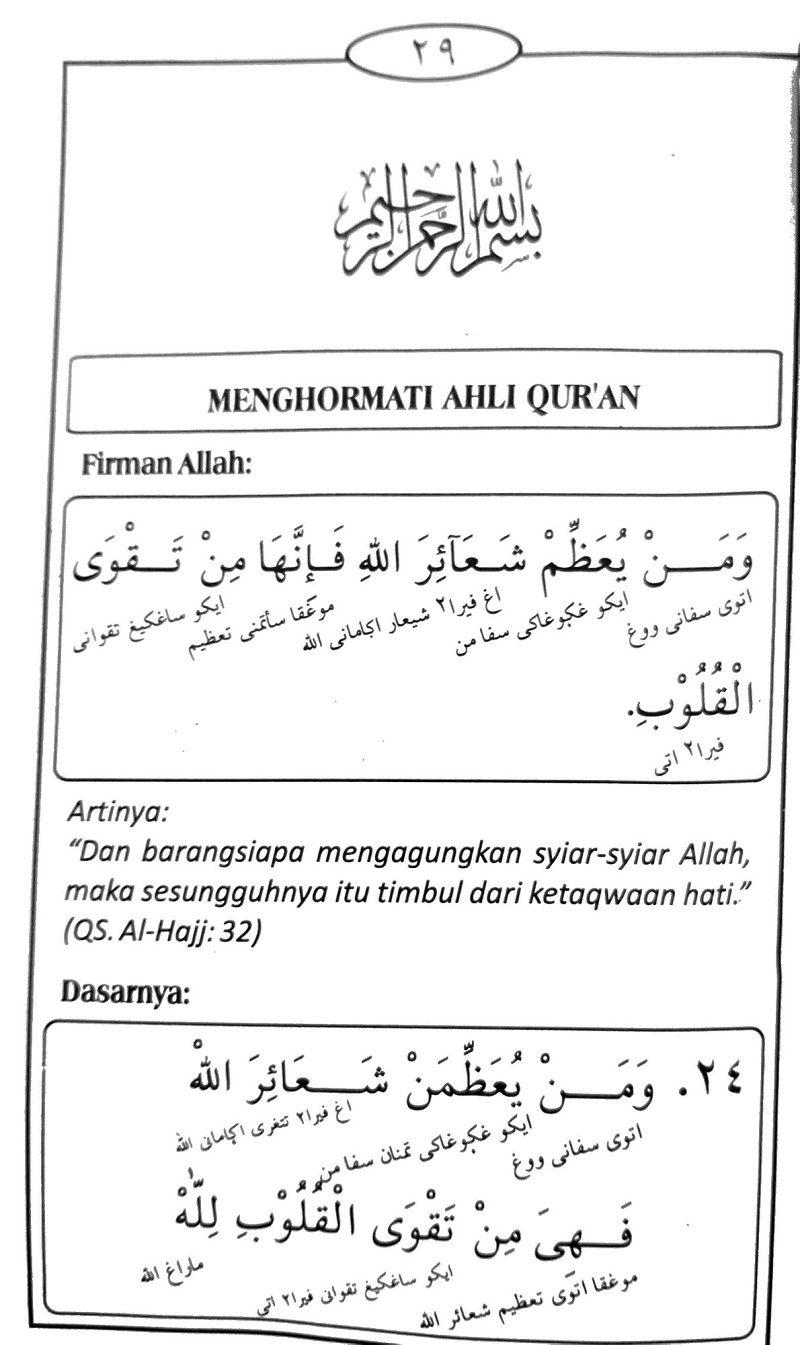 ٢٩
بسم الله الرحمن الرحيم
MENGHORMATI AHLI QUR'AN
Firman Allah:
وَمَـــنْ يُعَظِّمْ شَـعَآئِرَ اللهِ فَـإِنَّهَا مِنْ تَـــقْوَى
اتوى سفانى ووڠ ايكو غڮوڠاكى سفا من اڠ فيرا٢ شيعار اڮامانى الله موڠقا سأتمنى تعظيم ايكو ساڠكيڠ تقوانى
الْقُلُوْبِ.
فيرا٢ اتى
Artinya:
“Dan barangsiapa mengagungkan syiar-syiar Allah,
maka sesungguhnya itu timbul dari ketaqwaan hati.”
(QS. Al-Hajj: 32)
Dasarnya:
٢٤. وَمَـــنْ يُعَظِّمَنْ شَـــعَائِرَ اللهْ
اتوى سفانى ووڠ ايكو غڮوڠاكى تمنان سفا من اڠ فيرا٢ اڮامانى الله
فَـــهِيَ مِنْ تَقْوَى الْقُلُوْبِ لِلّٰهْ
موڠقا اتوى تعظيم شعائر الله ايكو ساڠكيڠ تقوانى فيرا٢ اتى ماراڠ الله